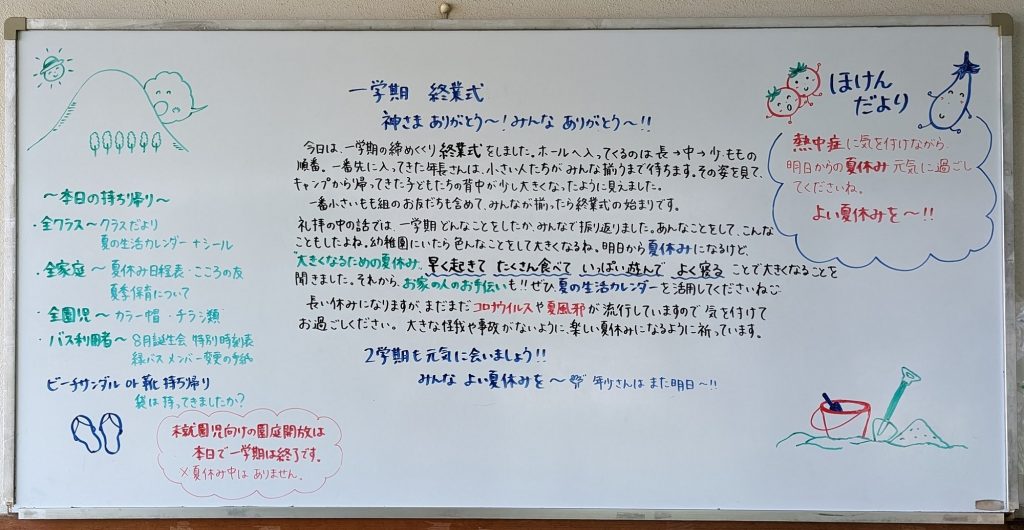 ～本日の持ち帰り～
・全クラス～クラスだより
夏の生活カレンダー ナシール
・全家庭～夏休み日程表・こころの友
夏季保育について
・全園児～カラー帽・チラシ類
・バス利用者～8月誕生会 特別時刻表
緑バス メンバー変更の手紙
ビーチサンダル or 靴 持ち帰り
袋は持ってきましたか？
未就園児向けの園庭開放は
本日で一学期は終了です。
※夏休み中は ありません。
一学期 終業式
神さま ありがとう～！みんな ありがとう～!!
今日は、一学期の締めくくり 終業式をしました。ホールへ入ってくるのは 長→中→少・ももの
順番。一番先に入ってきた年長さんは、小さい人たちが みんな揃うまで待ちます。その姿を見て、
キャンプから帰ってきた子どもたちの背中が少し大きくなったように見えました。
一番小さいもも組のお友だちも含めて、みんなが揃ったら終業式の始まりです。
礼拝の中の話では、一学期 どんなことをしたか、みんなで振り返りました。あんなことをして、こんな
こともしたよね。幼稚園にいたら色んなことをして大きくなるね。明日から夏休みになるけど、
"大きくなるための夏休み、早く起きて たくさん食べて いっぱい遊んで よく寝る ことで大きくなることを
聞きました。それから、お家の人のお手伝いも!! ぜひ、夏の生活カレンダーを活用してくださいね
長い休みになりますが、まだまだ コロナウイルスや 夏風邪 が流行していますので 気を付けて
お過ごしください。大きな怪我や事故がないように、楽しい夏休みになるように祈っています。
2学期も元気に会いましょう!!
みんな よい夏休みを～ 年少さんは また明日～!!
ほけん
だより
熱中症に気を付けながら、
明日からの夏休み 元気に過ごし
てくださいね。
よい夏休みを～!!